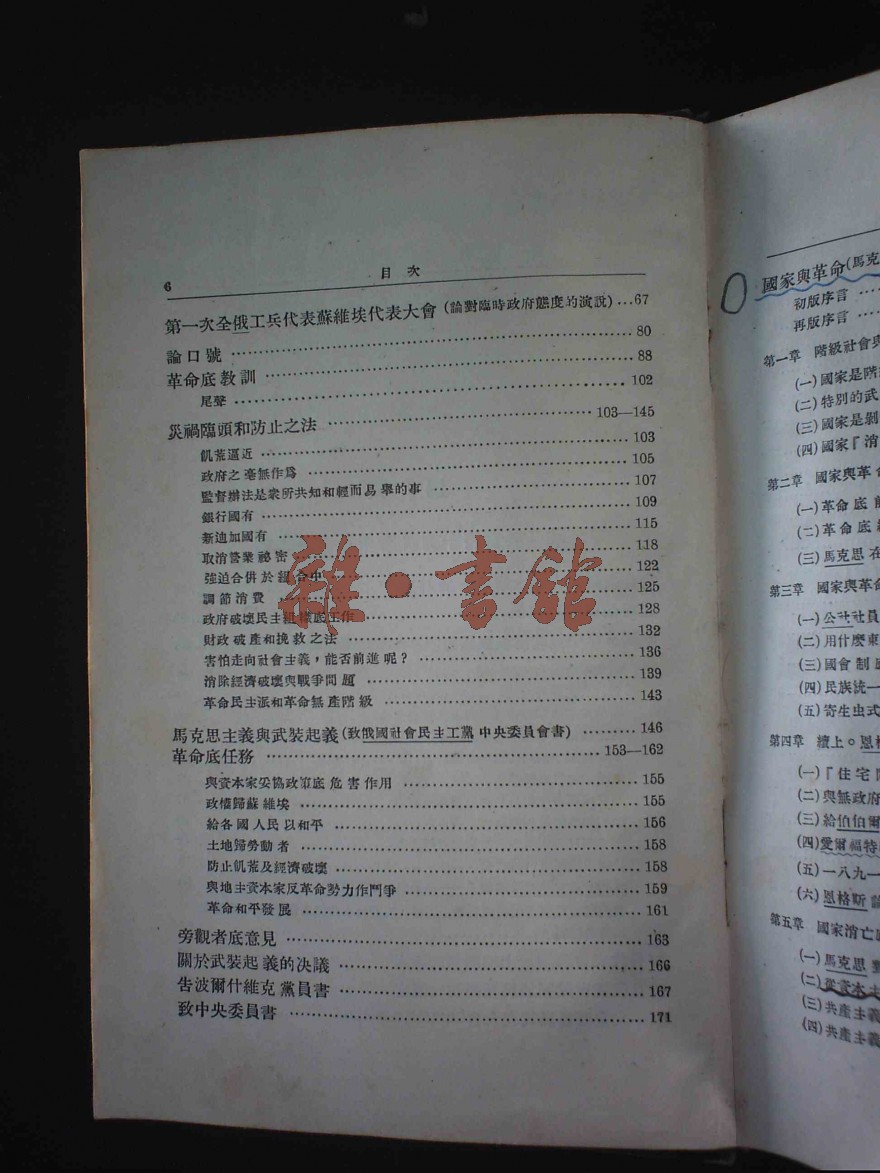 6
目次
第一次全俄工兵代表蘇維埃代表大會(論對臨時政府態度的演說)...67
論口號 ... 80
革命底教訓 ... 88
尾聲 ... 102
災禍臨頭和防止之法 ... 103—145
飢荒逼近 ... 103
政府之毫無作爲 ... 105
監督辦法是衆所共知和輕而易舉的事 ... 107
銀行國有 ... 109
新迪加國有 ... 115
取消營業祕密 ... 118
強迫合併於組合中 ... 122
調節消費 ... 125
政府破壞民主組織底工作 ... 128
財政破產和挽救之法 ... 132
害怕走向社會主義,能否前進呢? ... 136
消除經濟破壞與戰爭問題 ... 139
革命民主派和革命無產階級 ... 143
馬克思主義與武裝起義(致俄國社會民主工黨中央委員會書) ... 146
革命底任務 ... 153—162
與資本家妥協政策底危害作用 ... 155
政權歸蘇維埃 ... 155
給各國人民以和平 ... 156
土地歸勞動者 ... 158
防止飢荒及經濟破壞 ... 158
與地主資本家反革命勢力作鬥爭 ... 159
革命和平發展 ... 161
旁觀者底意見 ... 163
關於武裝起義的決議 ... 166
告波爾什維克黨員書 ... 167
致中央委員書 ... 171
雜·書館
國家與革命(馬克
初版序言 ...
再版序言 ...
第一章 階級社會與
(一)國家是階
(二)特別的武
(三)國家是剝
(四)國家『消
第二章 國家與革命
(一)革命底前
(二)革命底
(三)馬克思在
第三章 國家與革命
(一)公社社員
(二)用什麽東
(三)國會制度
(四)民族統一
(五)寄生虫式
第四章 續上。恩格
(一)『住宅問
(二)與無政府
(三)給伯伯爾
(四)愛爾福特
(五)一八九一
(六)恩格斯論
第五章 國家消亡
(一)馬克思
(二)從資本主
(三)共產主義
(四)共產主義